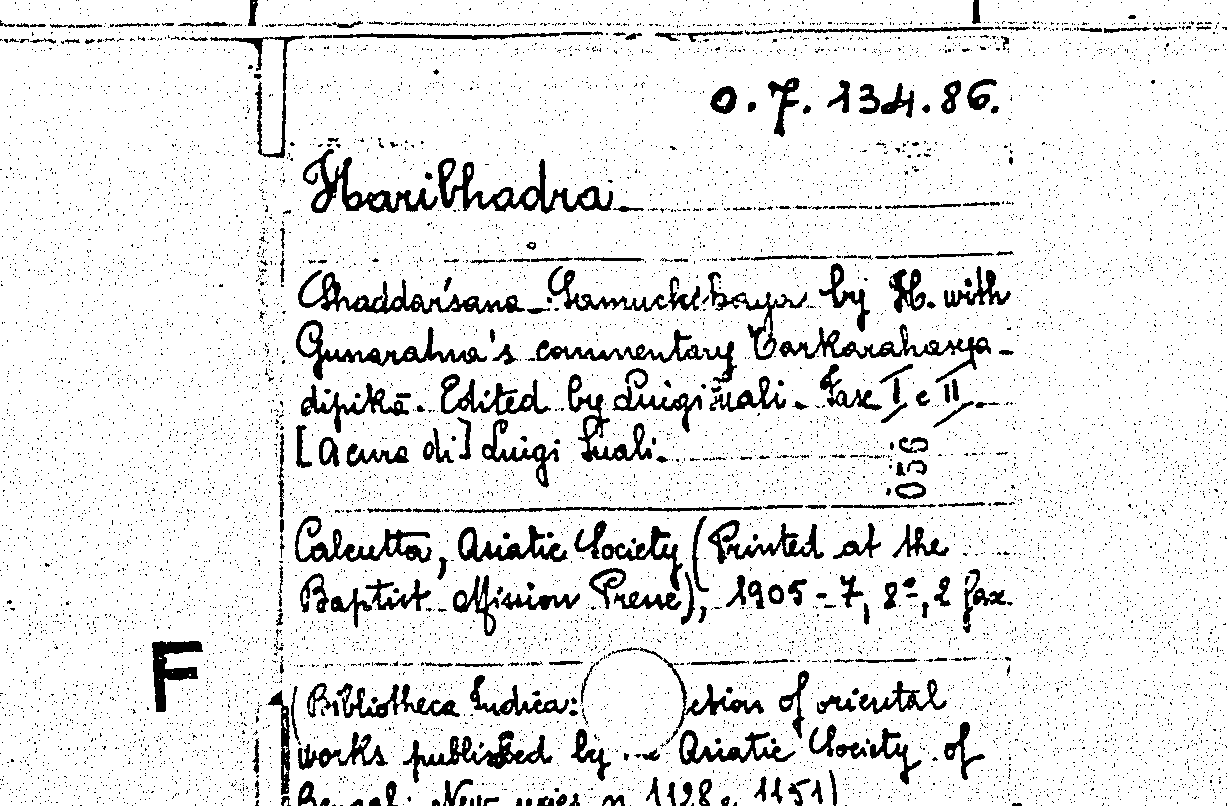 0.7.134.86.
Haribhadra.
Shaddarśana-Samuchchaya by H. with
Gunaratna's commentary Tarkarahasya-
dipikā. Edited by Luigi Suali. Fasc I e II.
[A cura di] Luigi Suali.
036
Calcutta, Asiatic Society (Printed at the
Baptist Mission Press), 1905-7, 8°, 2 fax
F
(Bibliotheca Indica: ection of oriental
works published by ... Asiatic Society of
Bengal. New series n. 1128 e 1151)